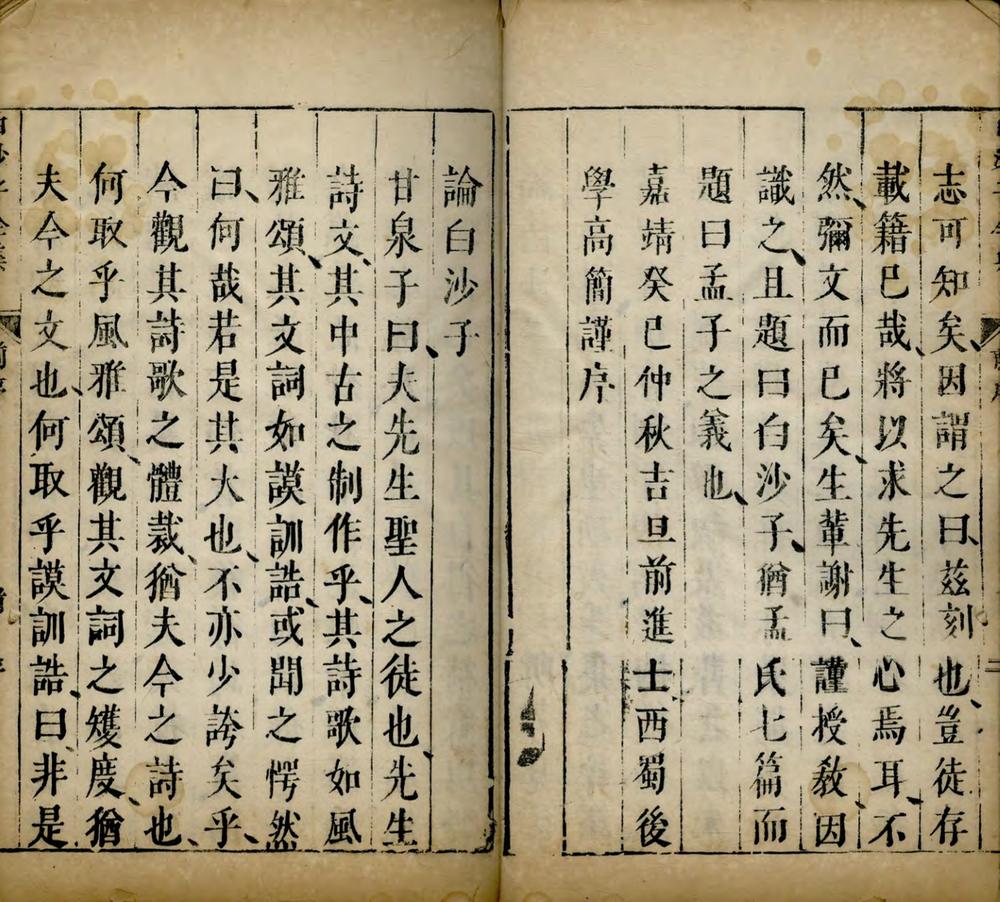 志可知矣因謂之曰兹刻也豈徒存
載籍已哉將以求先生之心焉耳不
然彌文而已矣生軰謝曰謹授教因
識之且題曰白沙子猶孟氏七篇而
題曰孟子之義也
嘉靖癸巳仲秋吉旦前進士西蜀後
學高簡謹序
論白沙子
甘泉子曰夫先生聖人之徒也先生
詩文其中古之制作乎其詩歌如風
雅頌其文詞如謨訓誥或聞之愕然
曰何哉若是其大也不亦少誇矣乎
今觀其詩歌之體裁猶夫今之詩也
何取乎風雅頌觀其文詞之矱度猶
夫今之文也何取乎謨訓誥曰非是